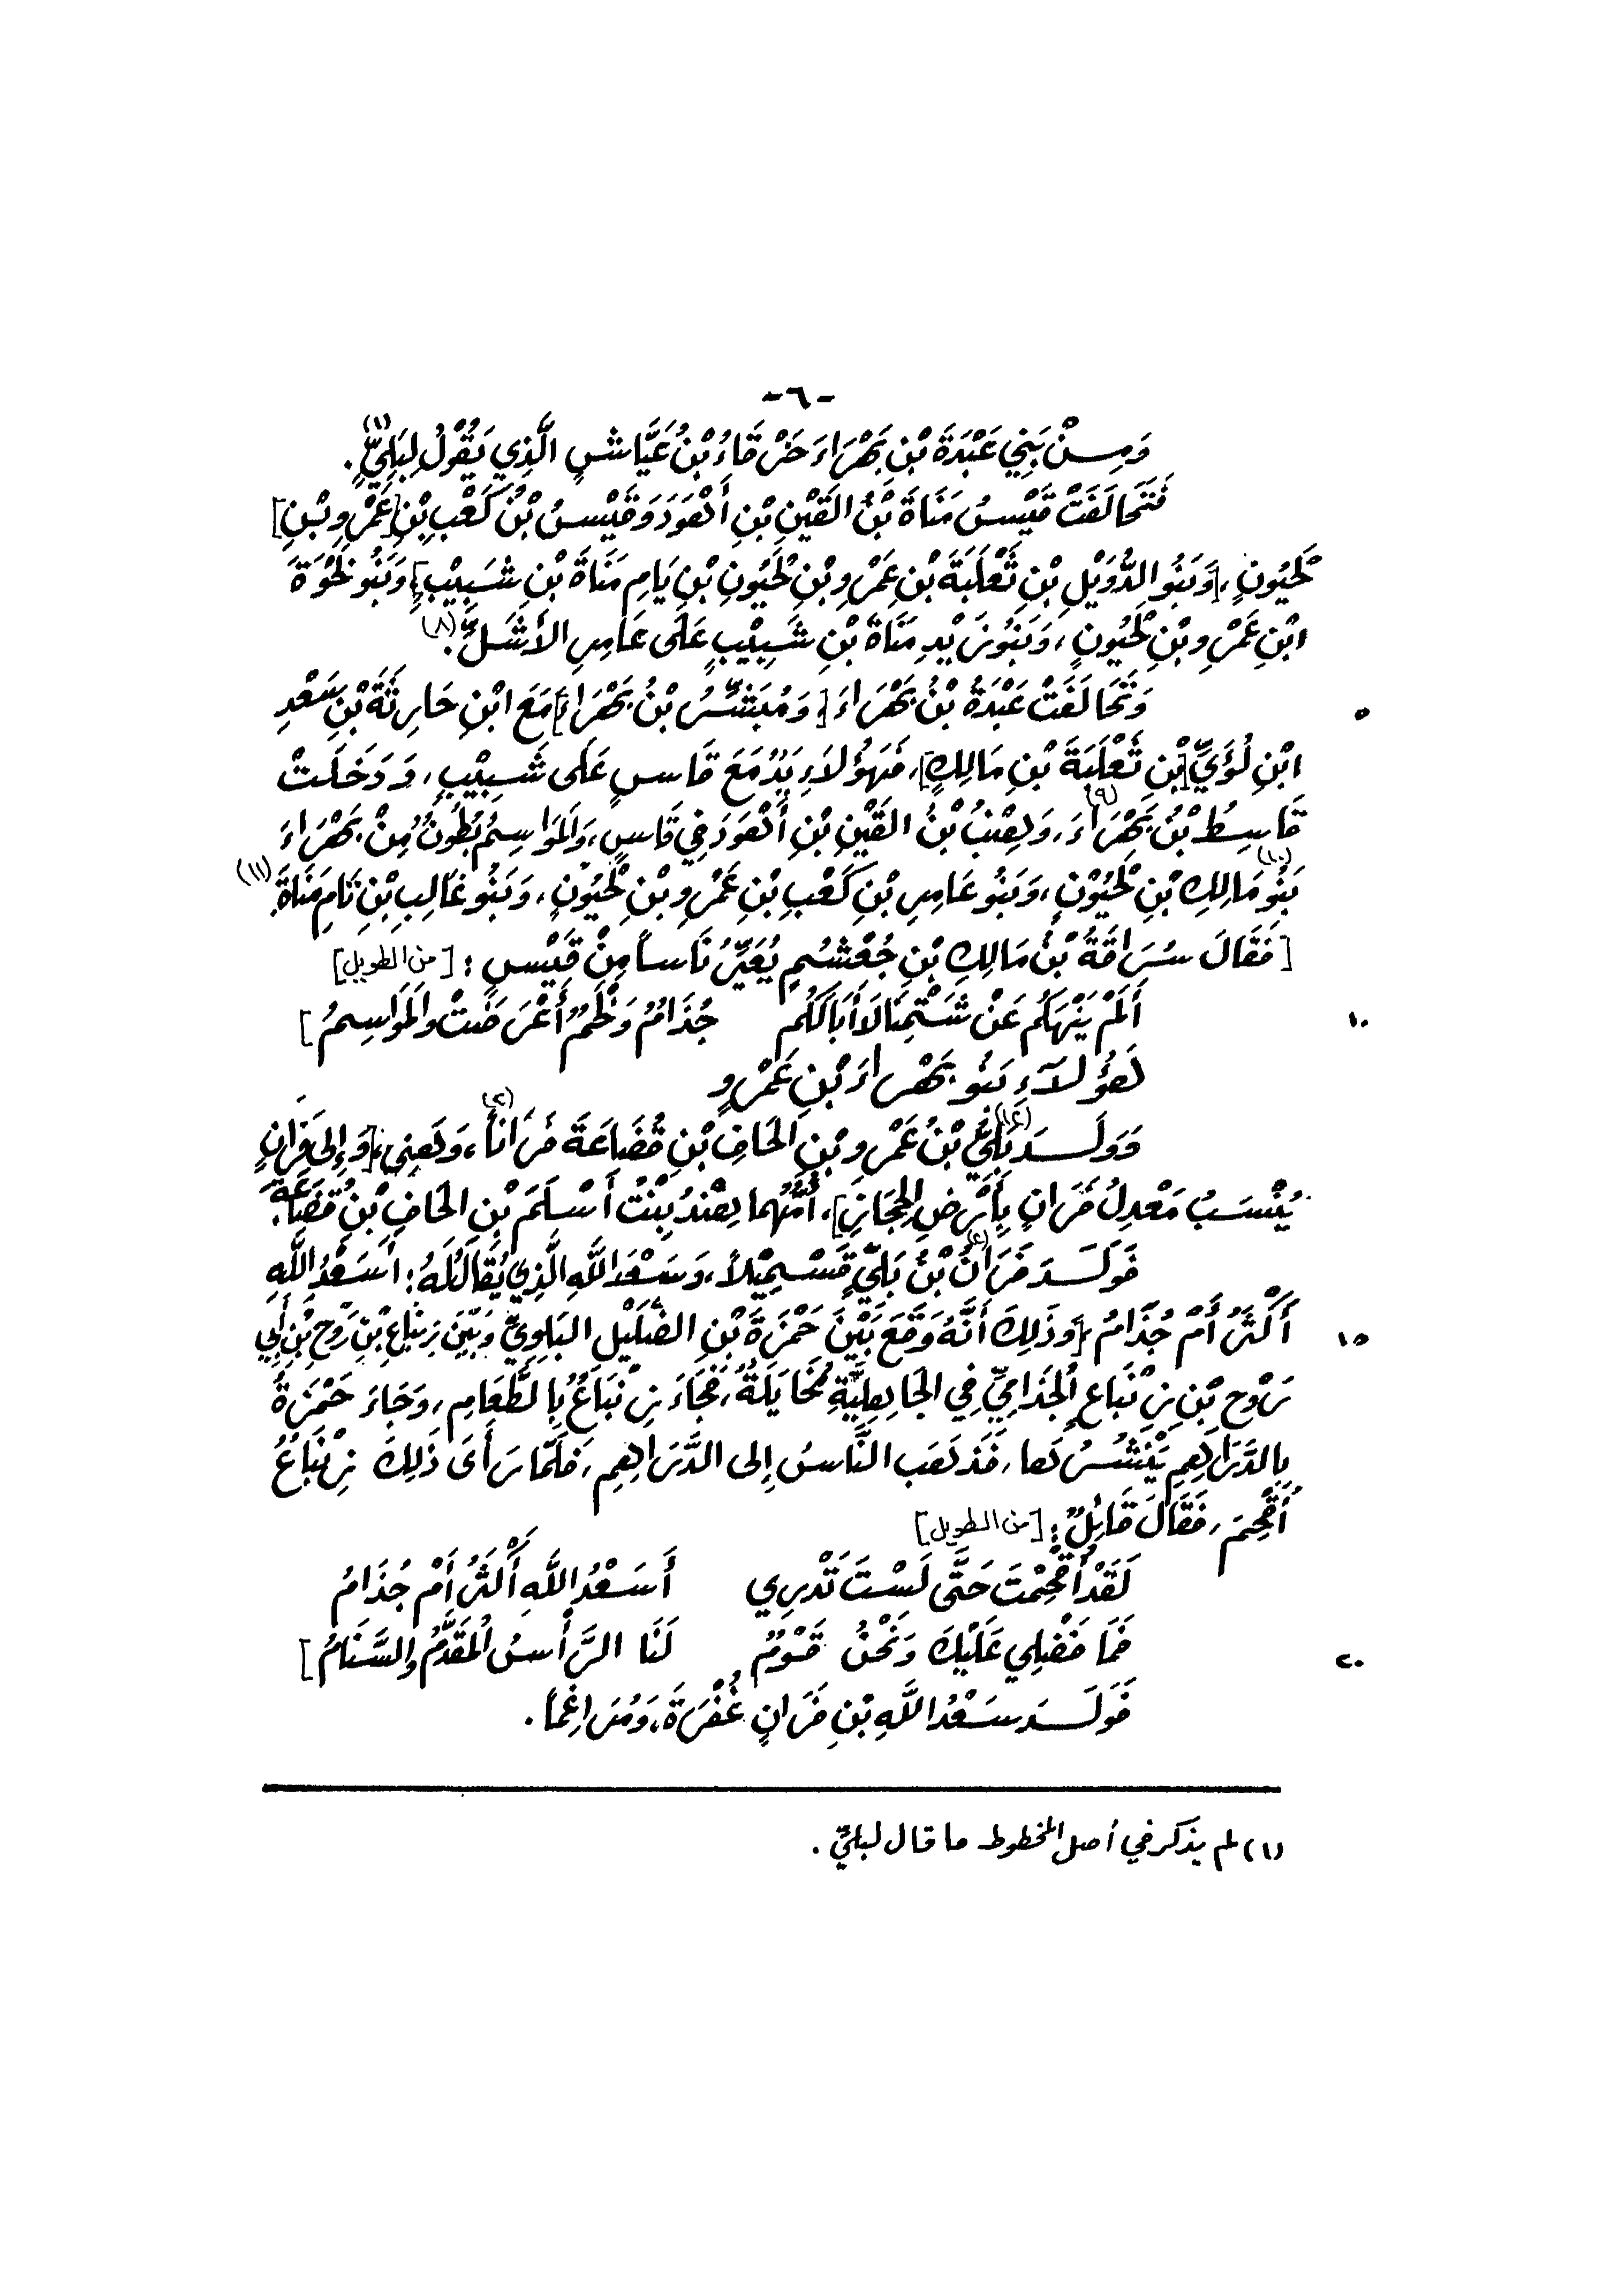 -٦-
وَمِنْ بَنِي عَبْدَةَ بْنِ بَهْرَاءَ خَرْقَاءُ بْنُ عَيَّاشٍ الَّذِي يَقُوْلُ لِبَلِيٍّ(١).
فَتَحَالَفَتْ قَيْسُ مَنَاةَ بْنُ القَيْنِ بْنِ أَهْوَدَ وَقَيْسُ بْنُ كَعْبِ بْنِ [عَمْرِو بْنِ]
لَحْيُونٍ، [وَبَنُو الدُّوَيْلِ بْنِ ثَعْلَبَةَ بْنِ عَمْرِو بْنِ لَحْيُونِ بْنِ يَامِ مَنَاةَ بْنِ شَبِيْبٍ]، وَبَنُو نَحْوَةَ
ابْنِ عَمْرِو بْنِ لَحْيُونٍ، وَبَنُو زَيْدِ مَنَاةَ بْنِ شَبِيْبٍ عَلَى عَامِرٍ الأَشَلِّ(٨).
٥ وَتَحَالَفَتْ عَبْدَةُ بْنُ بَهْرَاءَ [وَمُبَشِّرُ بْنُ بَهْرَاءَ] مَعَ ابْنِ حَارِثَةَ بْنِ سَعْدِ
ابْنِ لُؤَيِّ [بْنِ ثَعْلَبَةَ بْنِ مَالِكٍ]، فَهَؤُلاَءِ يَدٌ مَعَ قَاسٍ عَلَى شَبِيْبٍ، وَدَخَلَتْ
قَاسِطُ بْنُ بَهْرَاءَ(٩)، وَهِنْبُ بْنُ القَيْنِ بْنِ أَهْوَدَ فِي قَاسٍ، وَالمَوَاسِمُ بُطُونٌ مِنْ بَهْرَاءَ
بَنُو(١٠) مَالِكِ بْنِ لَحْيُوْنٍ، وَبَنُو عَامِرِ بْنِ كَعْبِ بْنِ عَمْرِو بْنِ لَحْيُوْنٍ، وَبَنُو غَالِبِ بْنِ تَامِ مَنَاةَ(١١).
[فَقَالَ سُرَاقَةُ بْنُ مَالِكِ بْنِ جُعْشُمٍ يُعَيِّرُ نَاساً مِنْ قَيْسٍ: [من الطويل]
١٠ أَلَمْ يَنْهَكُم عَنْ شَتْمِنَا لَا أَبَا لَكُم جُذَامٌ وَلَخْمٌ أَعْرَضَتْ وَالمَوَاسِمُ]
هَؤُلَاءِ بَنُو بَهْرَاءَ بْنِ عَمْرٍو
وَوَلَدَ بَلِيُّ(١٢) بْنُ عَمْرِو بْنِ الحَافِ بْنِ قُضَاعَةَ فَرَاناً(٣)، وَهَنِي، [وَإِلَى فَرَانٍ
يُنْسَبُ مَعْدِنُ فَرَانٍ بِأَرْضِ الحِجَازِ]، أُمُّهُمَا هِنْدُ بِنْتُ أَسْلَمَ بْنِ الحَافِ بْنِ قُضَاعَةَ.
فَوَلَدَ فَرَانُ(٤) بْنُ بَلِيٍّ قَسْمِيْلاً، وَسَعْدَ اللَّهِ الَّذِي يُقَالُ لَهُ: أَسَعْدُ اللَّهِ
١٥ أَكْثَرُ أَمْ جُذَامُ [وَذَلِكَ أَنَّهُ وَقَعَ بَيْنَ حَمْزَةَ بْنِ الضُّلَيْلِ البَلَوِيِّ وَبَيْنَ زِنْبَاعِ بْنِ رَوْحِ بْنِ أَبِي
رَوْحِ بْنِ زِنْبَاعٍ الجُذَامِيِّ فِي الجَاهِلِيَّةِ مُخَايَلَةٌ، فَجَاءَ زِنْبَاعُ بِالطَّعَامِ، وَجَاءَ حَمْزَةُ
بِالدَّرَاهِمِ يَنْثُرُهَا، فَذَهَبَ النَّاسُ إِلى الدَّرَاهِمِ، فَلَمَّا رَأَى ذَلِكَ زِنْبَاعُ
أُفْحِمَ، فَقَالَ قَائِلٌ: [من الطويل]
لَقَدْ أُفْحِمْتَ حَتَّى لَسْتَ تَدْرِي أَسَعْدُ اللَّهِ أَكْثَرُ أَمْ جُذَامُ
٢٠ فَمَا فَضْلِي عَلَيْكَ وَنَحْنُ قَوْمٌ لَنَا الرَّأْسُ المُقَدَّمُ وَالسَّنَامُ]
فَوَلَدَ سَعْدُ اللَّهِ بْنِ فَرَانٍ غُفْرَةَ، وَمُرَاغِماً.
(١) لم يذكر في أصل المخطوط ما قال لبليٍّ.